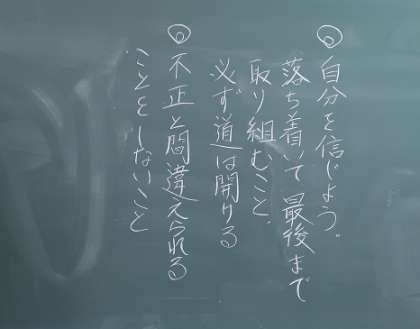 ◎自分を信じよう。
落ち着いて最後まで
取り組むこと、
必ず道は開ける
◎不正と間違えられる
ことをしないこと